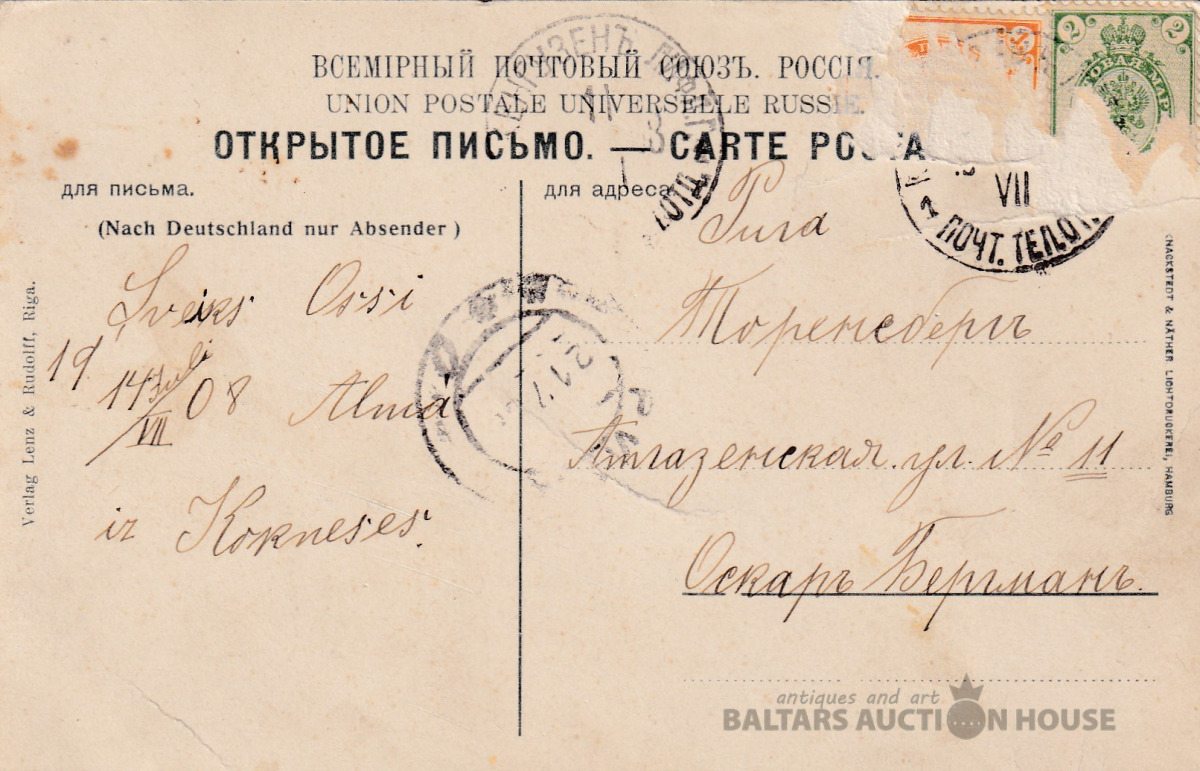 ВСЕМІРНЫЙ ПОЧТОВЫЙ СОЮЗЪ. РОССІЯ.
UNION POSTALE UNIVERSELLE RUSSIE.
ОТКРЫТОЕ ПИСЬМО. — CARTE POSTA
2 2
VII
ПОЧТ. ТЕЛ. ОТ
для письма.
(Nach Deutschland nur Absender)
Sveiks Ossi
19 14 Juli/VII 08 Alma
iz Kokneses.
для адреса
Рига
Торенсбергъ
Атгазенская. ул. № 11
Оскаръ Бергманъ.
Verlag Lenz & Rudolff, Riga.
KNACKSTEDT & NÄTHER LICHTDRUCKEREI, HAMBURG
antiques and art
BALTARS AUCTION HOUSE